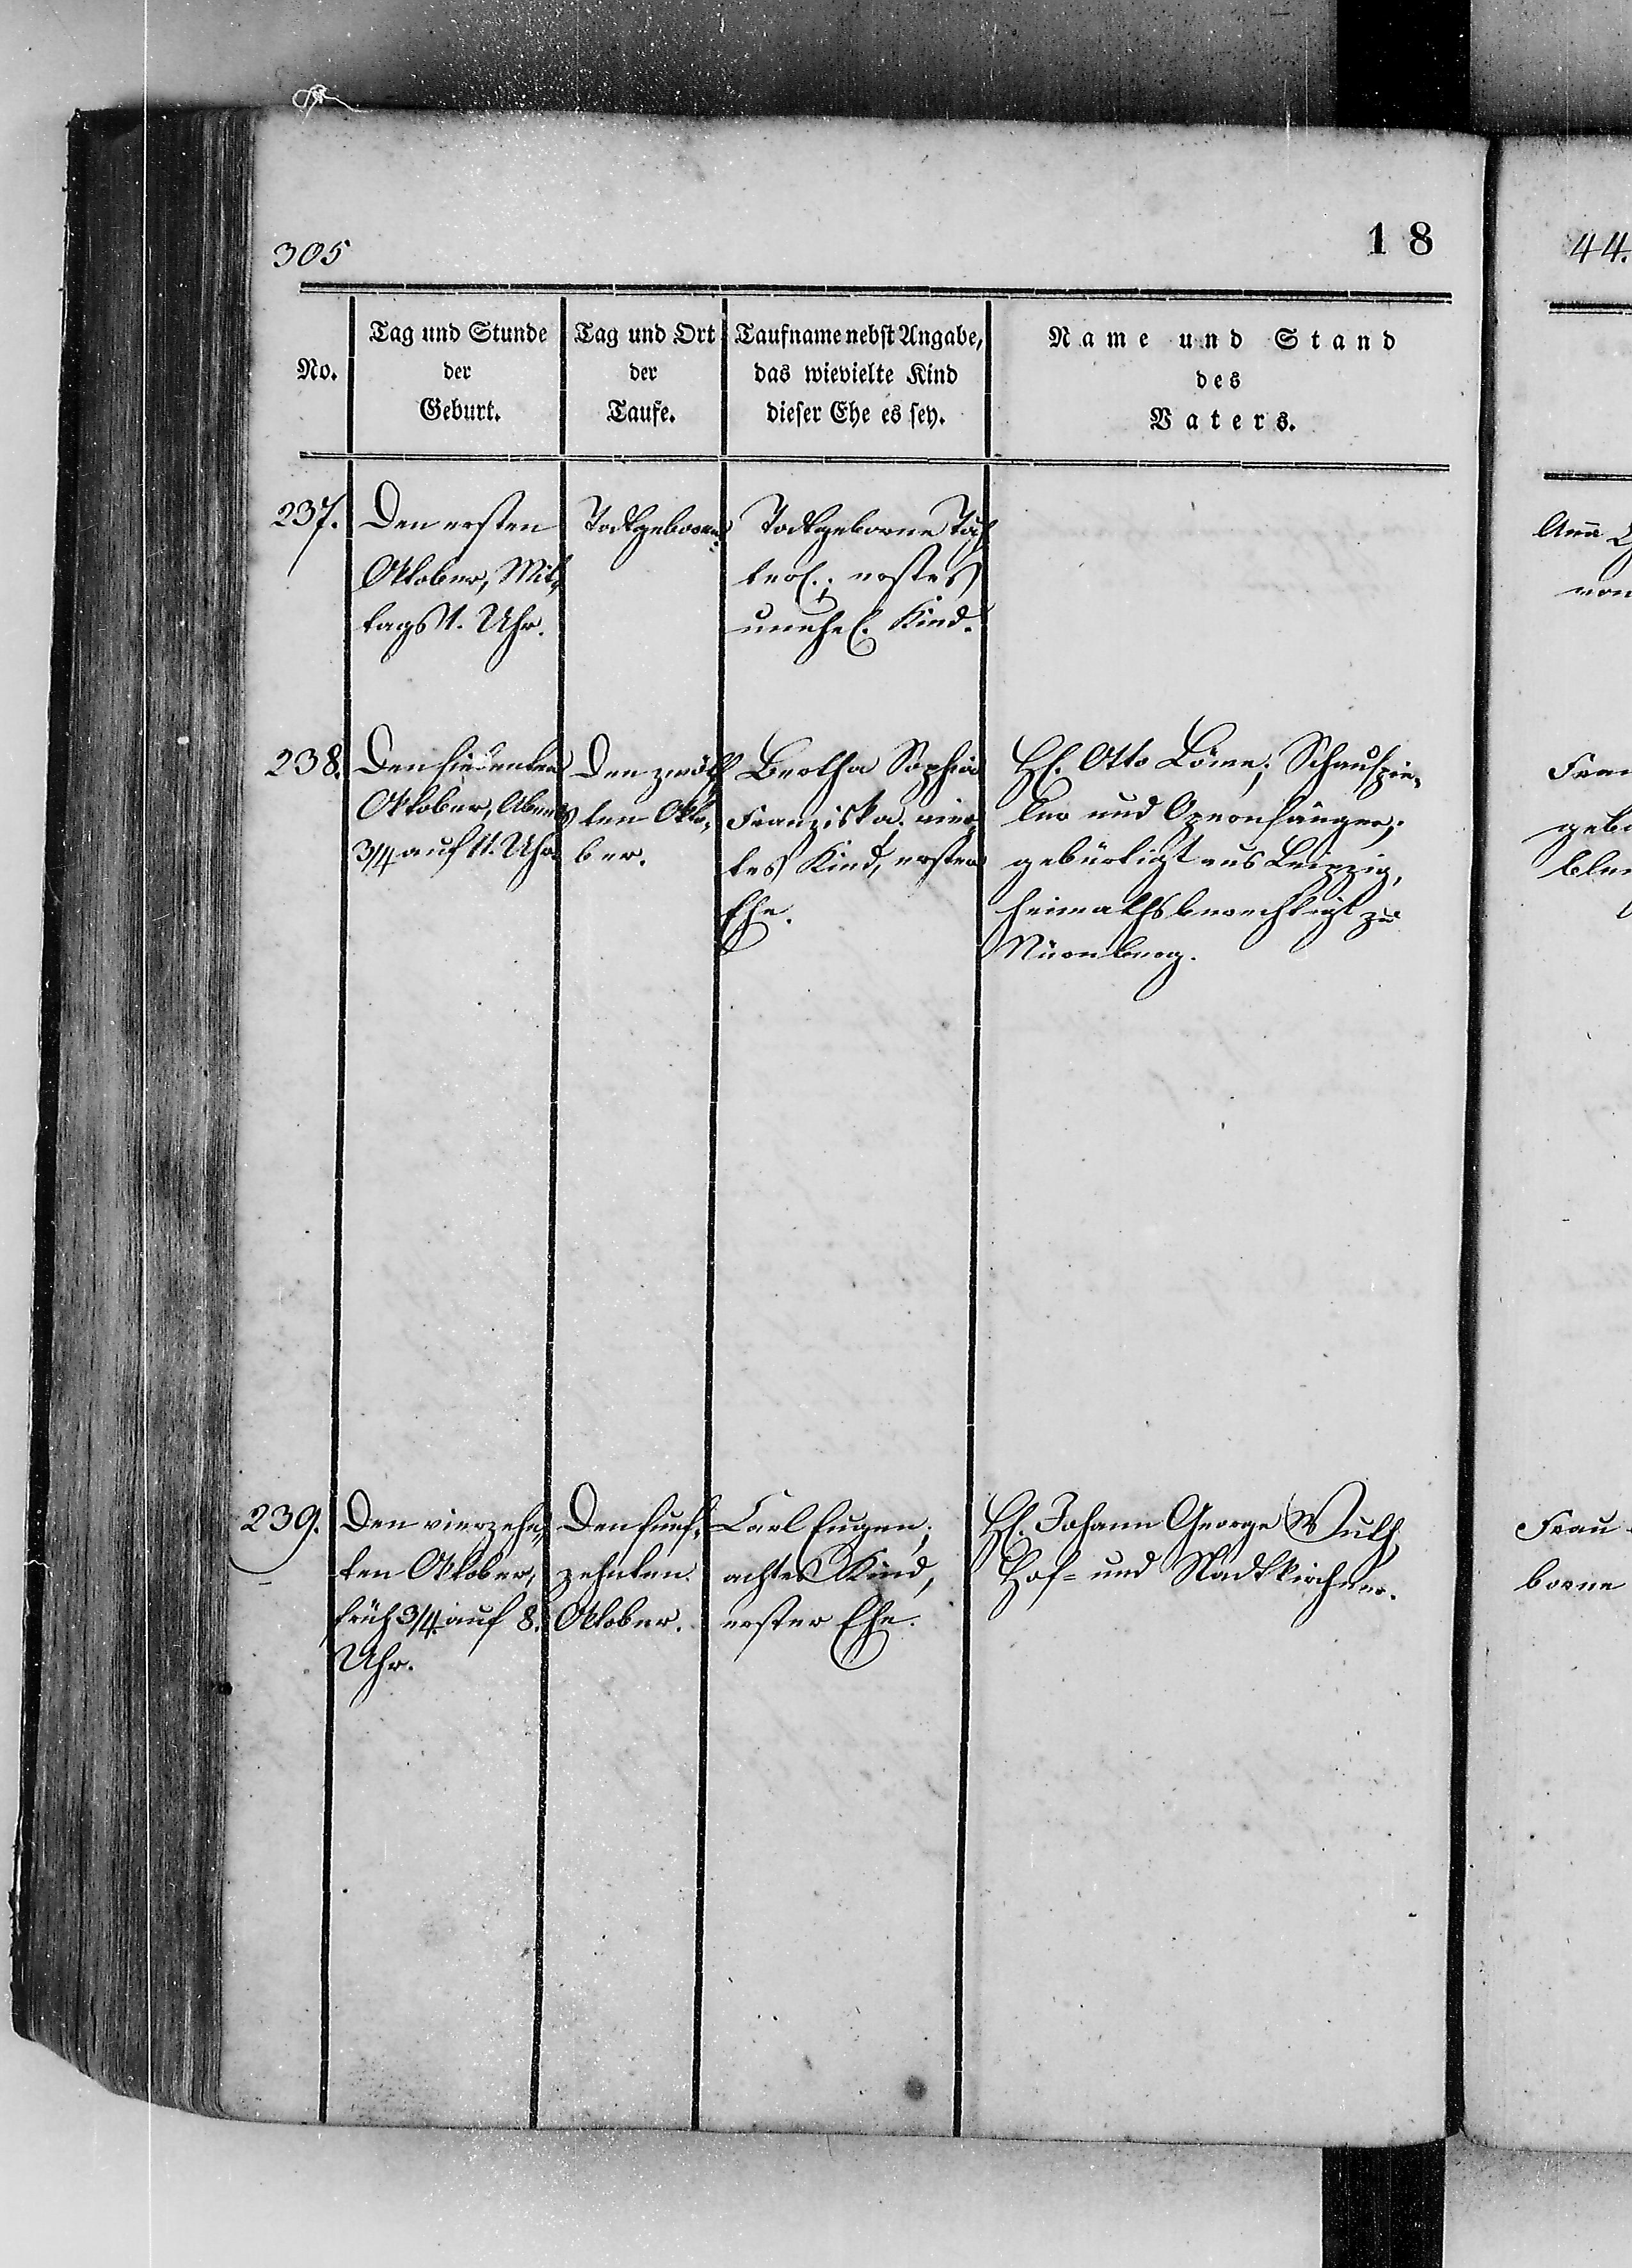 305
18
44.
No.
Tag und Stunde
der
Geburt.
Tag und Ort
der
Taufe.
Taufname nebst Angabe,
das wievielte Kind
dieser Ehe es sey.
Name und Stand
des
Vaters.
237.
Den ersten
Oktober, Mit-
tags 1. Uhr.
Todtgeboren.
Todtgeborne Töch-
terl.; erstes
unehel. Kind.
238.
Den siebenten
Oktober, Abends
3/4 auf 11. Uhr.
Den zwölf-
ten Okto-
ber.
Bertha Sophia
Franziska; vier-
tes Kind, erster
Ehe.
H. Otto Löwe; Schauspie-
ler und Opernsänger;
gebürtigt aus Leipzig,
heimathsberechtigt zu
Nürnberg.
239.
Den vierzehn-
ten Oktober,
früh 3/4 auf 8.
Uhr.
Den funf-
zehnten
Oktober.
Carl Eugen;
achtes Kind,
erster Ehe.
H. Johann George Wulf,
Hof- und Stadtkirchner.
Anna
von
Frau
borne